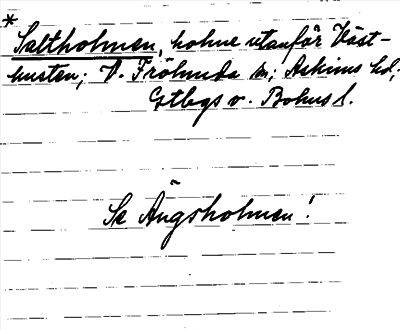 *
Saltholmen, holme utanför Väst-
kusten; V. Frölunda sn; Askims hd;
Gtbgs o. Bohus l.
Se Ängsholmen!